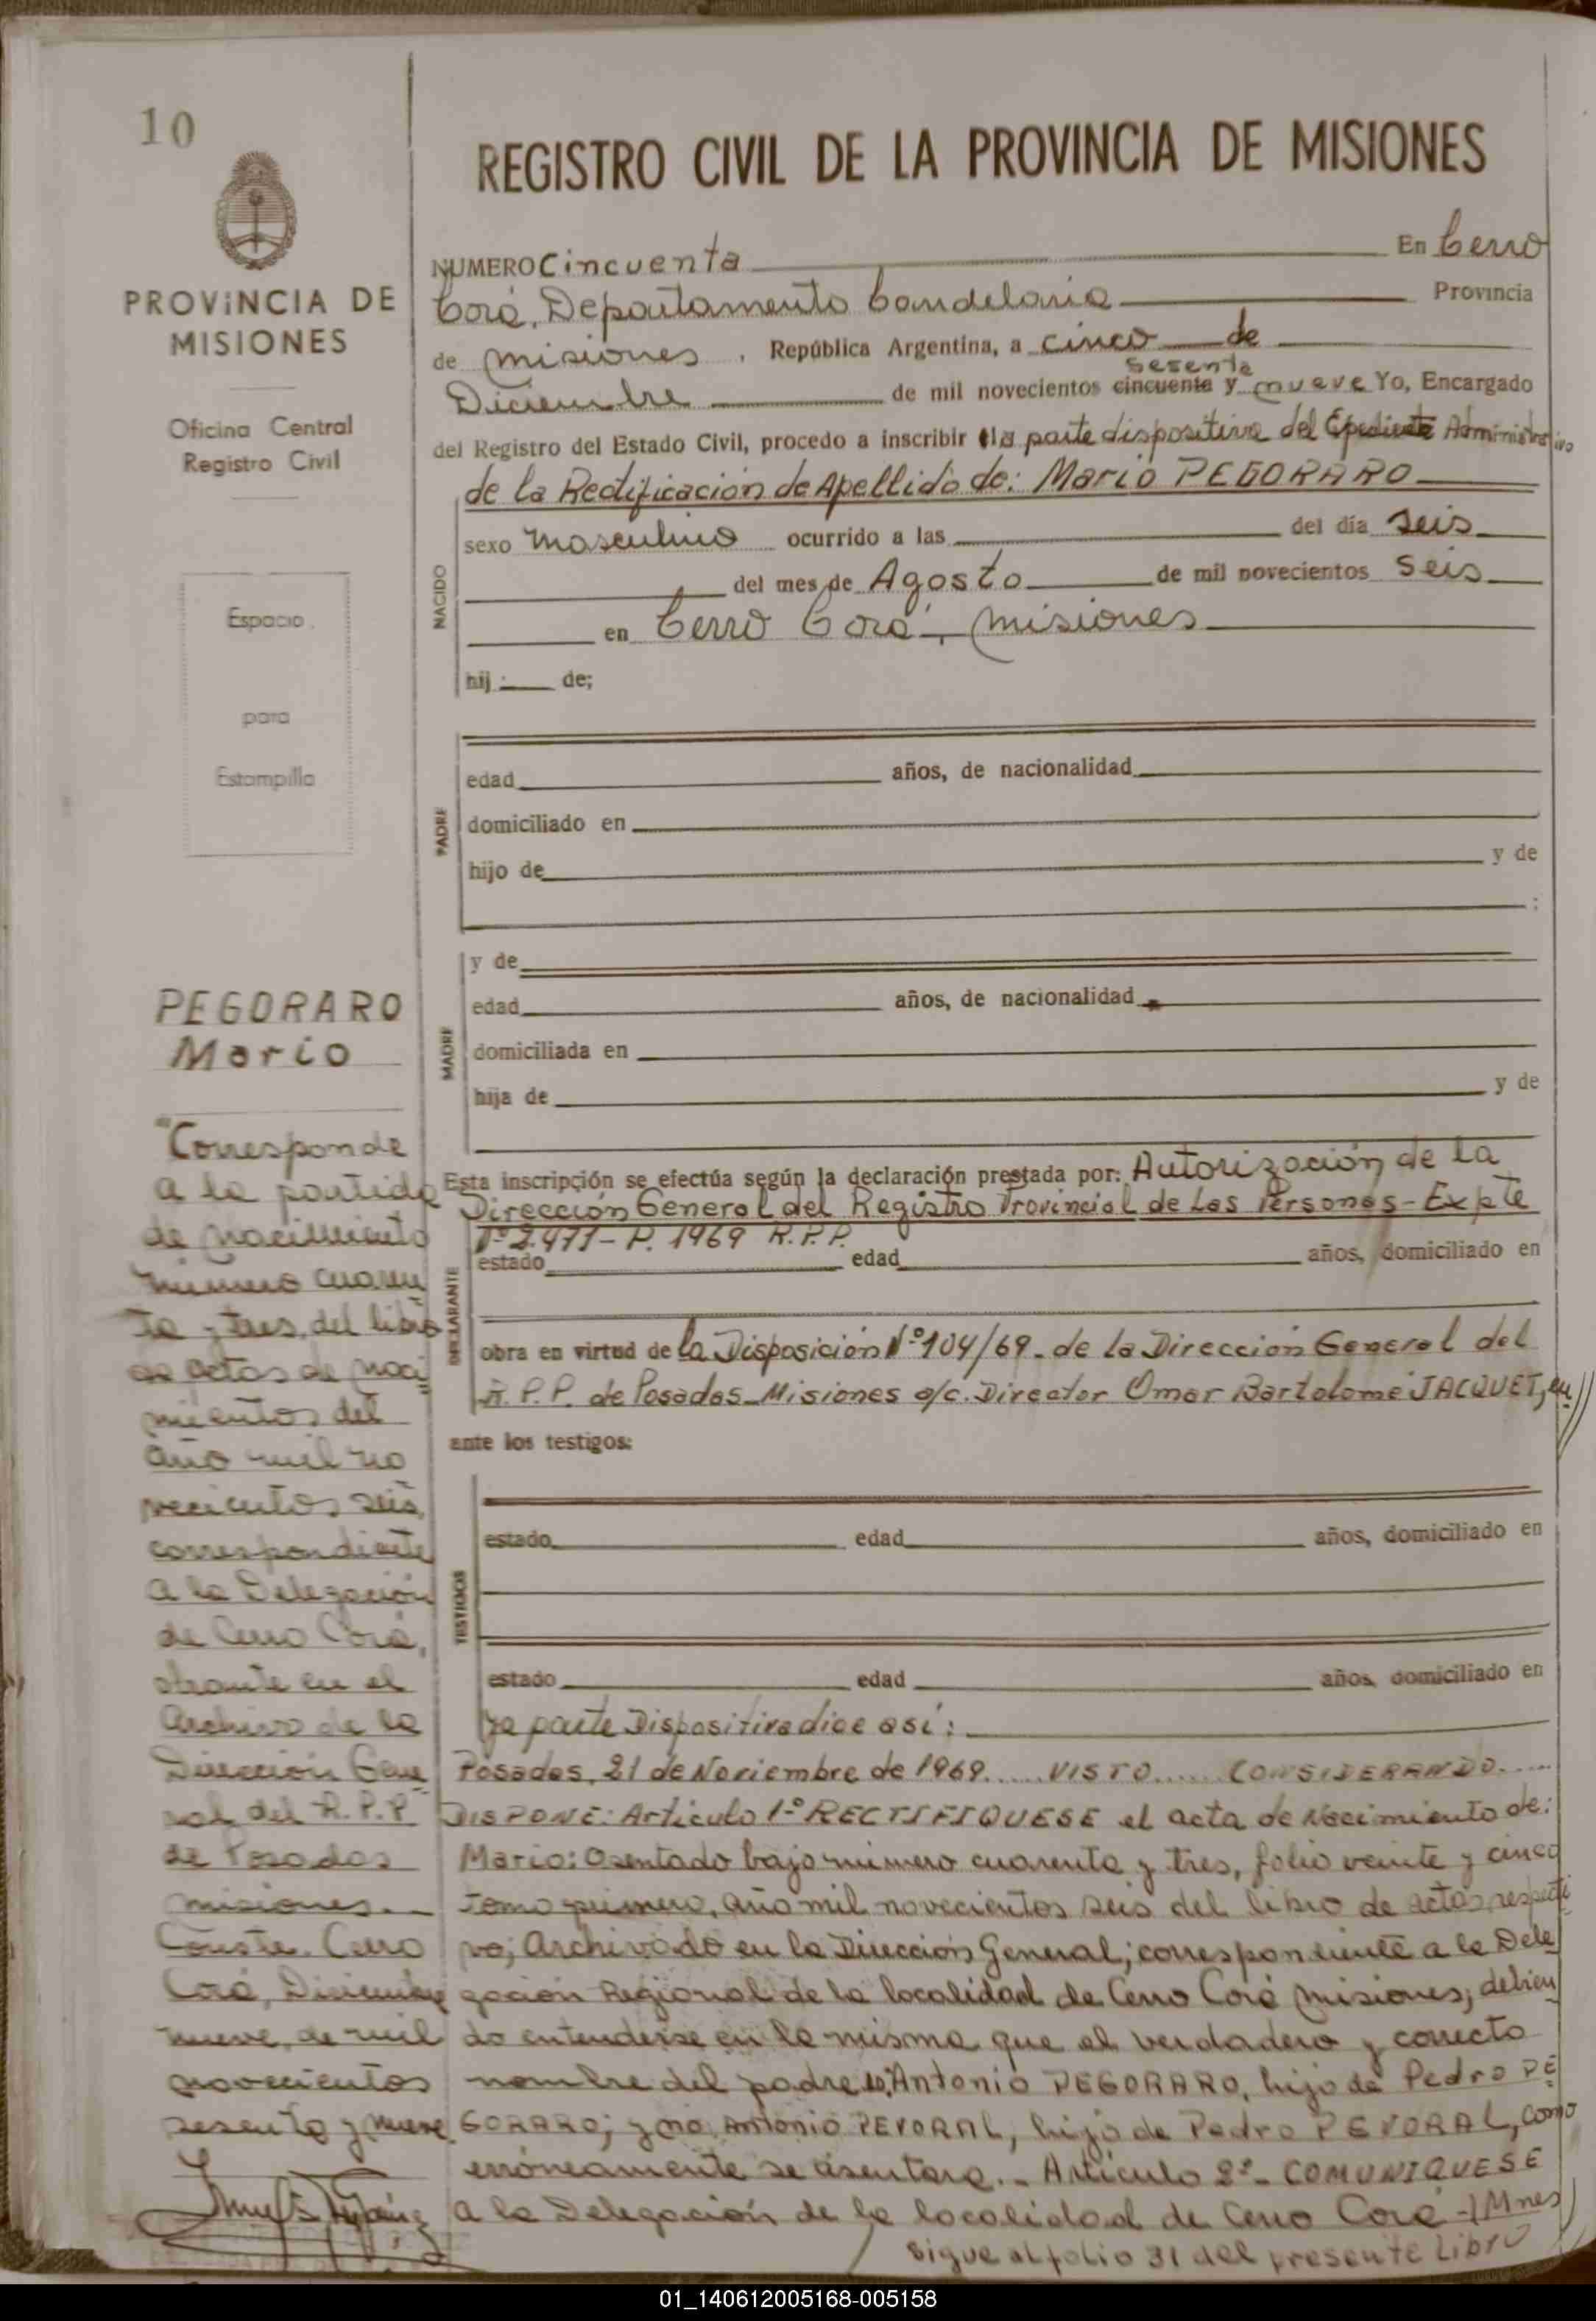 10
PROVINCIA DE
MISIONES
Oficina Central
Registro Civil
Espacio
para
Estampilla
REGISTRO CIVIL DE LA PROVINCIA DE MISIONES
NUMERO Cincuenta En Cerro
Corá, Departamento Candelaria Provincia
de misiones, República Argentina, a cinco de
Sesenta
Diciembre de mil novecientos cincuenta y nueve Yo, Encargado
del Registro del Estado Civil, procedo a inscribir el la parte dispositiva del Epediente Administrativo
de la Rectificación de Apellido de: Mario PEGORARO
NACIDO
sexo masculino ocurrido a las del día seis
del mes de Agosto de mil novecientos seis
en Cerro Corá, misiones
hij de;
PADRE
edad años, de nacionalidad
domiciliado en
hijo de y de
:
MADRE
y de
edad años, de nacionalidad
domiciliada en
hija de y de
DECLARANTE
Esta inscripción se efectúa según la declaración prestada por: Autorización de la
Dirección General del Registro Provincial de Las Personas - Expte
Nº 2.477 - P. 1969 R.P.P.
estado edad años, domiciliado en
obra en virtud de la Disposición Nº 104/69 - de la Dirección General del
R.P.P. de Posadas - Misiones a/c. Director Omar Bartolomé JACQUET, en //
ante los testigos:
TESTIGOS
estado edad años, domiciliado en
estado edad años, domiciliado en
La parte Dispositiva dice así:
Posadas, 21 de Noviembre de 1969 ..... VISTO ..... CONSIDERANDO .....
DISPONE: Artículo 1º RECTIFIQUESE el acta de Nacimiento de:
Mario: Asentado bajo número cuarenta y tres, folio veinte y cinco
tomo primero, año mil novecientos seis del libro de actas respecti
vo; Archivado en la Dirección General; correspondiente a la Dele
gación Regional de la localidad de Cerro Corá misiones; debien
do entenderse en la misma que el verdadero y correcto
nombre del padre es: Antonio PEGORARO, hijo de Pedro PE
GORARO; y no Antonio PEVORAL, hijo de Pedro PEVORAL, como
erróneamente se asentara. - Artículo 2º - COMUNIQUESE
a la Delegación de la localidad de Cerro Corá - (Mnes)
Sigue al folio 31 del presente Libro
PEGORARO
Mario
"Corresponde
a la partida
de nacimiento
número cuaren
ta y tres, del libro
de actas de naci
mientos del
año mil no
vecientos seis,
correspondiente
a la Delegación
de Cerro Corá,
obrante en el
Archivo de la
Dirección Gene
ral del R.P.P
de Posadas
misiones. -
Conste. Cerro
Corá, Diciembre
nueve, de mil
novecientos
sesenta y nueve
01_140612005168-005158